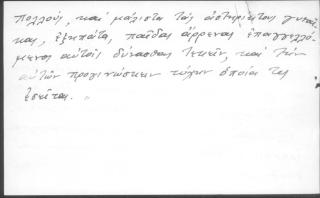 πολλούς, καὶ μάλιστα τὰς ἀστηρίκτους γυναῖ-
κας, ἐξηπάτα, παῖδας ἄρρενας ἐπαγγελλό-
μενος αὐταῖς δύνασθαι τεκεῖν, καὶ τὴν
αὐτῶν προγινώσκειν τύχην ὁποία τις
ἔσεται.